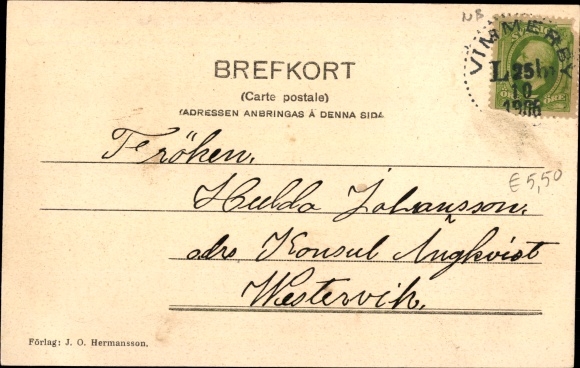 NB
VIMMERBY
L 25 In
10
1906
BREFKORT
(Carte postale)
(ADRESSEN ANBRINGAS Å DENNA SIDA
Fröken.
Hulda Johansson.
€ 5,50
adrs Konsul Ångkvist
Westervik.
Förlag: J. O. Hermansson.